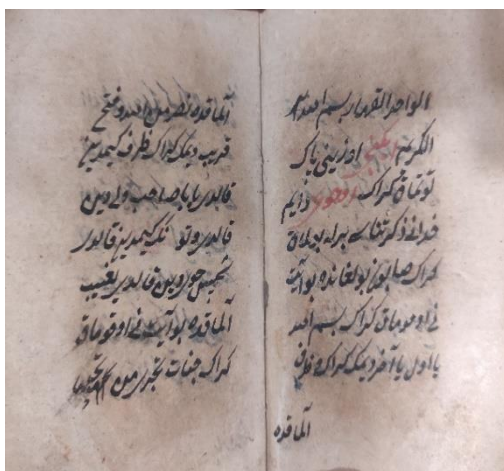 الواحد القهار بسم الله
الکریم اوزینی پاک
توتماق کراک دایم
خدانی ذکر ثناسی برله بولماق
کراک صابون بولغانده بو آیت
نی اوقوماق کراک بسم الله
یا اول یا آخر دیمک کراک
آلماقده
آلماقده نصر من الله و فتح
قریب دیمک کراک ظرف کیمدین
قالدی بابا صاحب ولی دین
قالدی کیمدین قالدی
قالدی یغیب
آلماقده بو آیت نی اوقوماق
کراک جنات تجری من تحتها